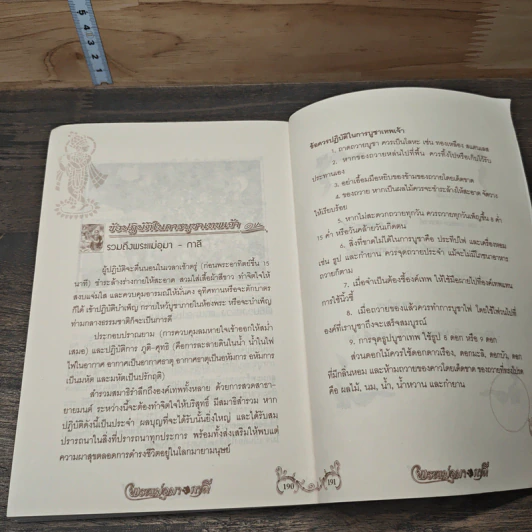 5 4 3 2 1
ข้อปฏิบัติในการบูชาเทพเจ้า
รวมถึงพระแม่อุมา - กาลี
ผู้ปฏิบัติจะตื่นนอนในเวลาเช้าตรู่ (ก่อนพระอาทิตย์ขึ้น 15
นาที) ชำระล้างร่างกายให้สะอาด สวมใส่เสื้อผ้าสีขาว ทำจิตใจให้
สงบแจ่มใส และควบคุมอารมณ์ให้มั่นคง อุทิศทานหรือจะตักบาตร
ก็ได้ เข้าปฏิบัติบำเพ็ญ กราบไหว้บูชาภายในห้องพระ หรือจะบำเพ็ญ
ท่ามกลางธรรมชาติก็จะเป็นการดี
ประกอบปราณยาม (การควบคุมลมหายใจเข้าออกให้สม่ำ
เสมอ) และปฏิบัติการ ภูติ-ศุทธิ (คือการละลายดินในน้ำ น้ำในไฟ
ไฟในอากาศ อากาศเป็นอากาศธาตุ อากาศธาตุเป็นอหังการ อหังการ
เป็นมหัต และมหัตเป็นปรักฤติ)
สำรวมสมาธิรำลึกถึงองค์เทพทั้งหลาย ด้วยการสวดสาธยา-
ยายมนต์ ระหว่างนี้จะต้องทำจิตใจให้บริสุทธิ์ มีสมาธิสำรวม หาก
ปฏิบัติดังนี้เป็นประจำ ผลบุญที่จะได้รับนั้นยิ่งใหญ่ และได้รับสม
ปรารถนาในสิ่งที่ปรารถนาทุกประการ พร้อมทั้งส่งเสริมให้พบแต่
ความผาสุขตลอดการดำรงชีวิตอยู่ในโลกมายามนุษย์
พระแม่อุมา กาลี
190
ข้อควรปฏิบัติในการบูชาเทพเจ้า
1. ถาดถวายบูชา ควรเป็นโลหะ เช่น ทองเหลือง สแตนเลส
2. หากของถวายหล่นไปที่พื้น ควรทิ้งไปหรือเก็บไว้รับ
ประทานเอง
3. อย่าเอื้อมมือหยิบของข้ามของถวายโดยเด็ดขาด
4. ของถวาย หากเป็นผลไม้ควรจะชำระล้างให้สะอาด จัดวาง
ให้เรียบร้อย
5. หากไม่สะดวกถวายทุกวัน ควรถวายทุกวันเพ็ญขึ้น 8 ค่ำ
15 ค่ำ หรือวันคล้ายวันเกิดตน
6. สิ่งที่ขาดไม่ได้ในการบูชาคือ ประทีปไฟ และเครื่องหอม
เช่น ธูป และกำยาน ควรจุดถวายประจำ แม้จะไม่มีโภชนาอาหาร
ถวายก็ตาม
7. เมื่อจำเป็นต้องชี้องค์เทพ ให้ใช้มือผายไปที่องค์เทพแทน
การใช้นิ้วชี้
8. เมื่อถวายของแล้วควรทำการบูชาไฟ โดยใช้ไฟวนไปที่
องค์ที่เราบูชาถึงจะเสร็จสมบูรณ์
9. การจุดธูปบูชาเทพ ใช้ธูป 8 ดอก หรือ 9 ดอก
ส่วนดอกไม้ควรใช้ดอกดาวเรือง, ดอกมะลิ, ดอกบัว, ดอกไม้
ที่มีกลิ่นหอม และห้ามถวายของคาวโดยเด็ดขาด ของถวายที่ชอบ
คือ ผลไม้, นม, น้ำ, น้ำหวาน และกำยาน
191
พระแม่อุมา กาลี